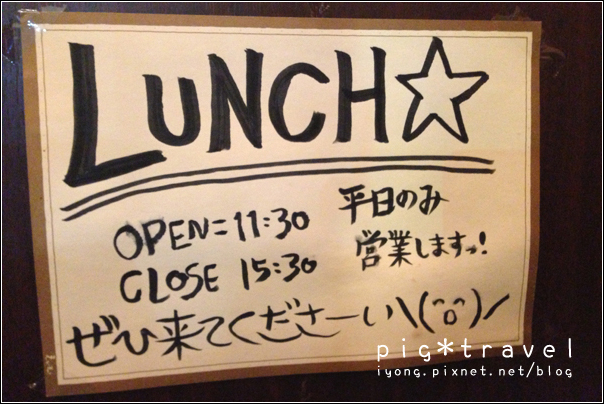 LUNCH☆
OPEN=11:30
CLOSE 15:30
平日のみ
営業しますっ!
ぜひ来てくださーい\(^o^)/
pig*travel
iyong.pixnet.net/blog